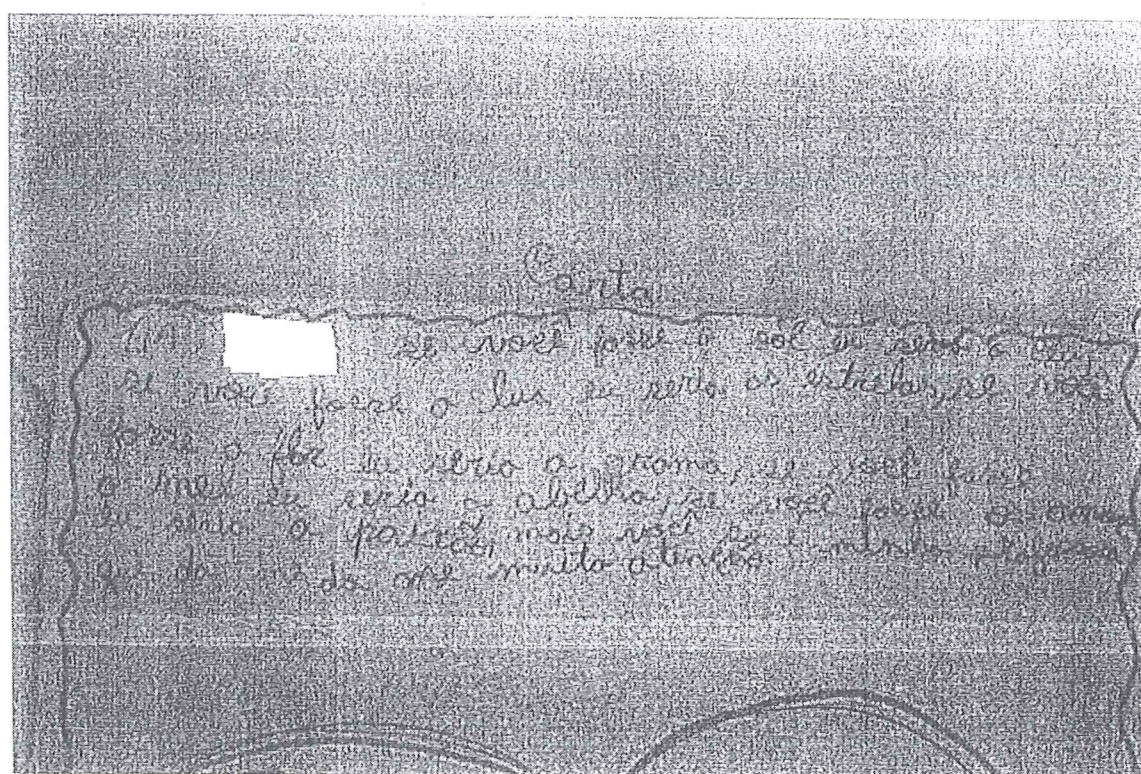 Carta
se você fosse o sol eu seria o céu,
se você fosse a lua eu seria as estrelas, se você
fosse a flor eu seria a grama, se você fosse
o mel eu seria a abelha, se você fosse o amor
eu seria a paixão, mais você é minha
da me muito atenção